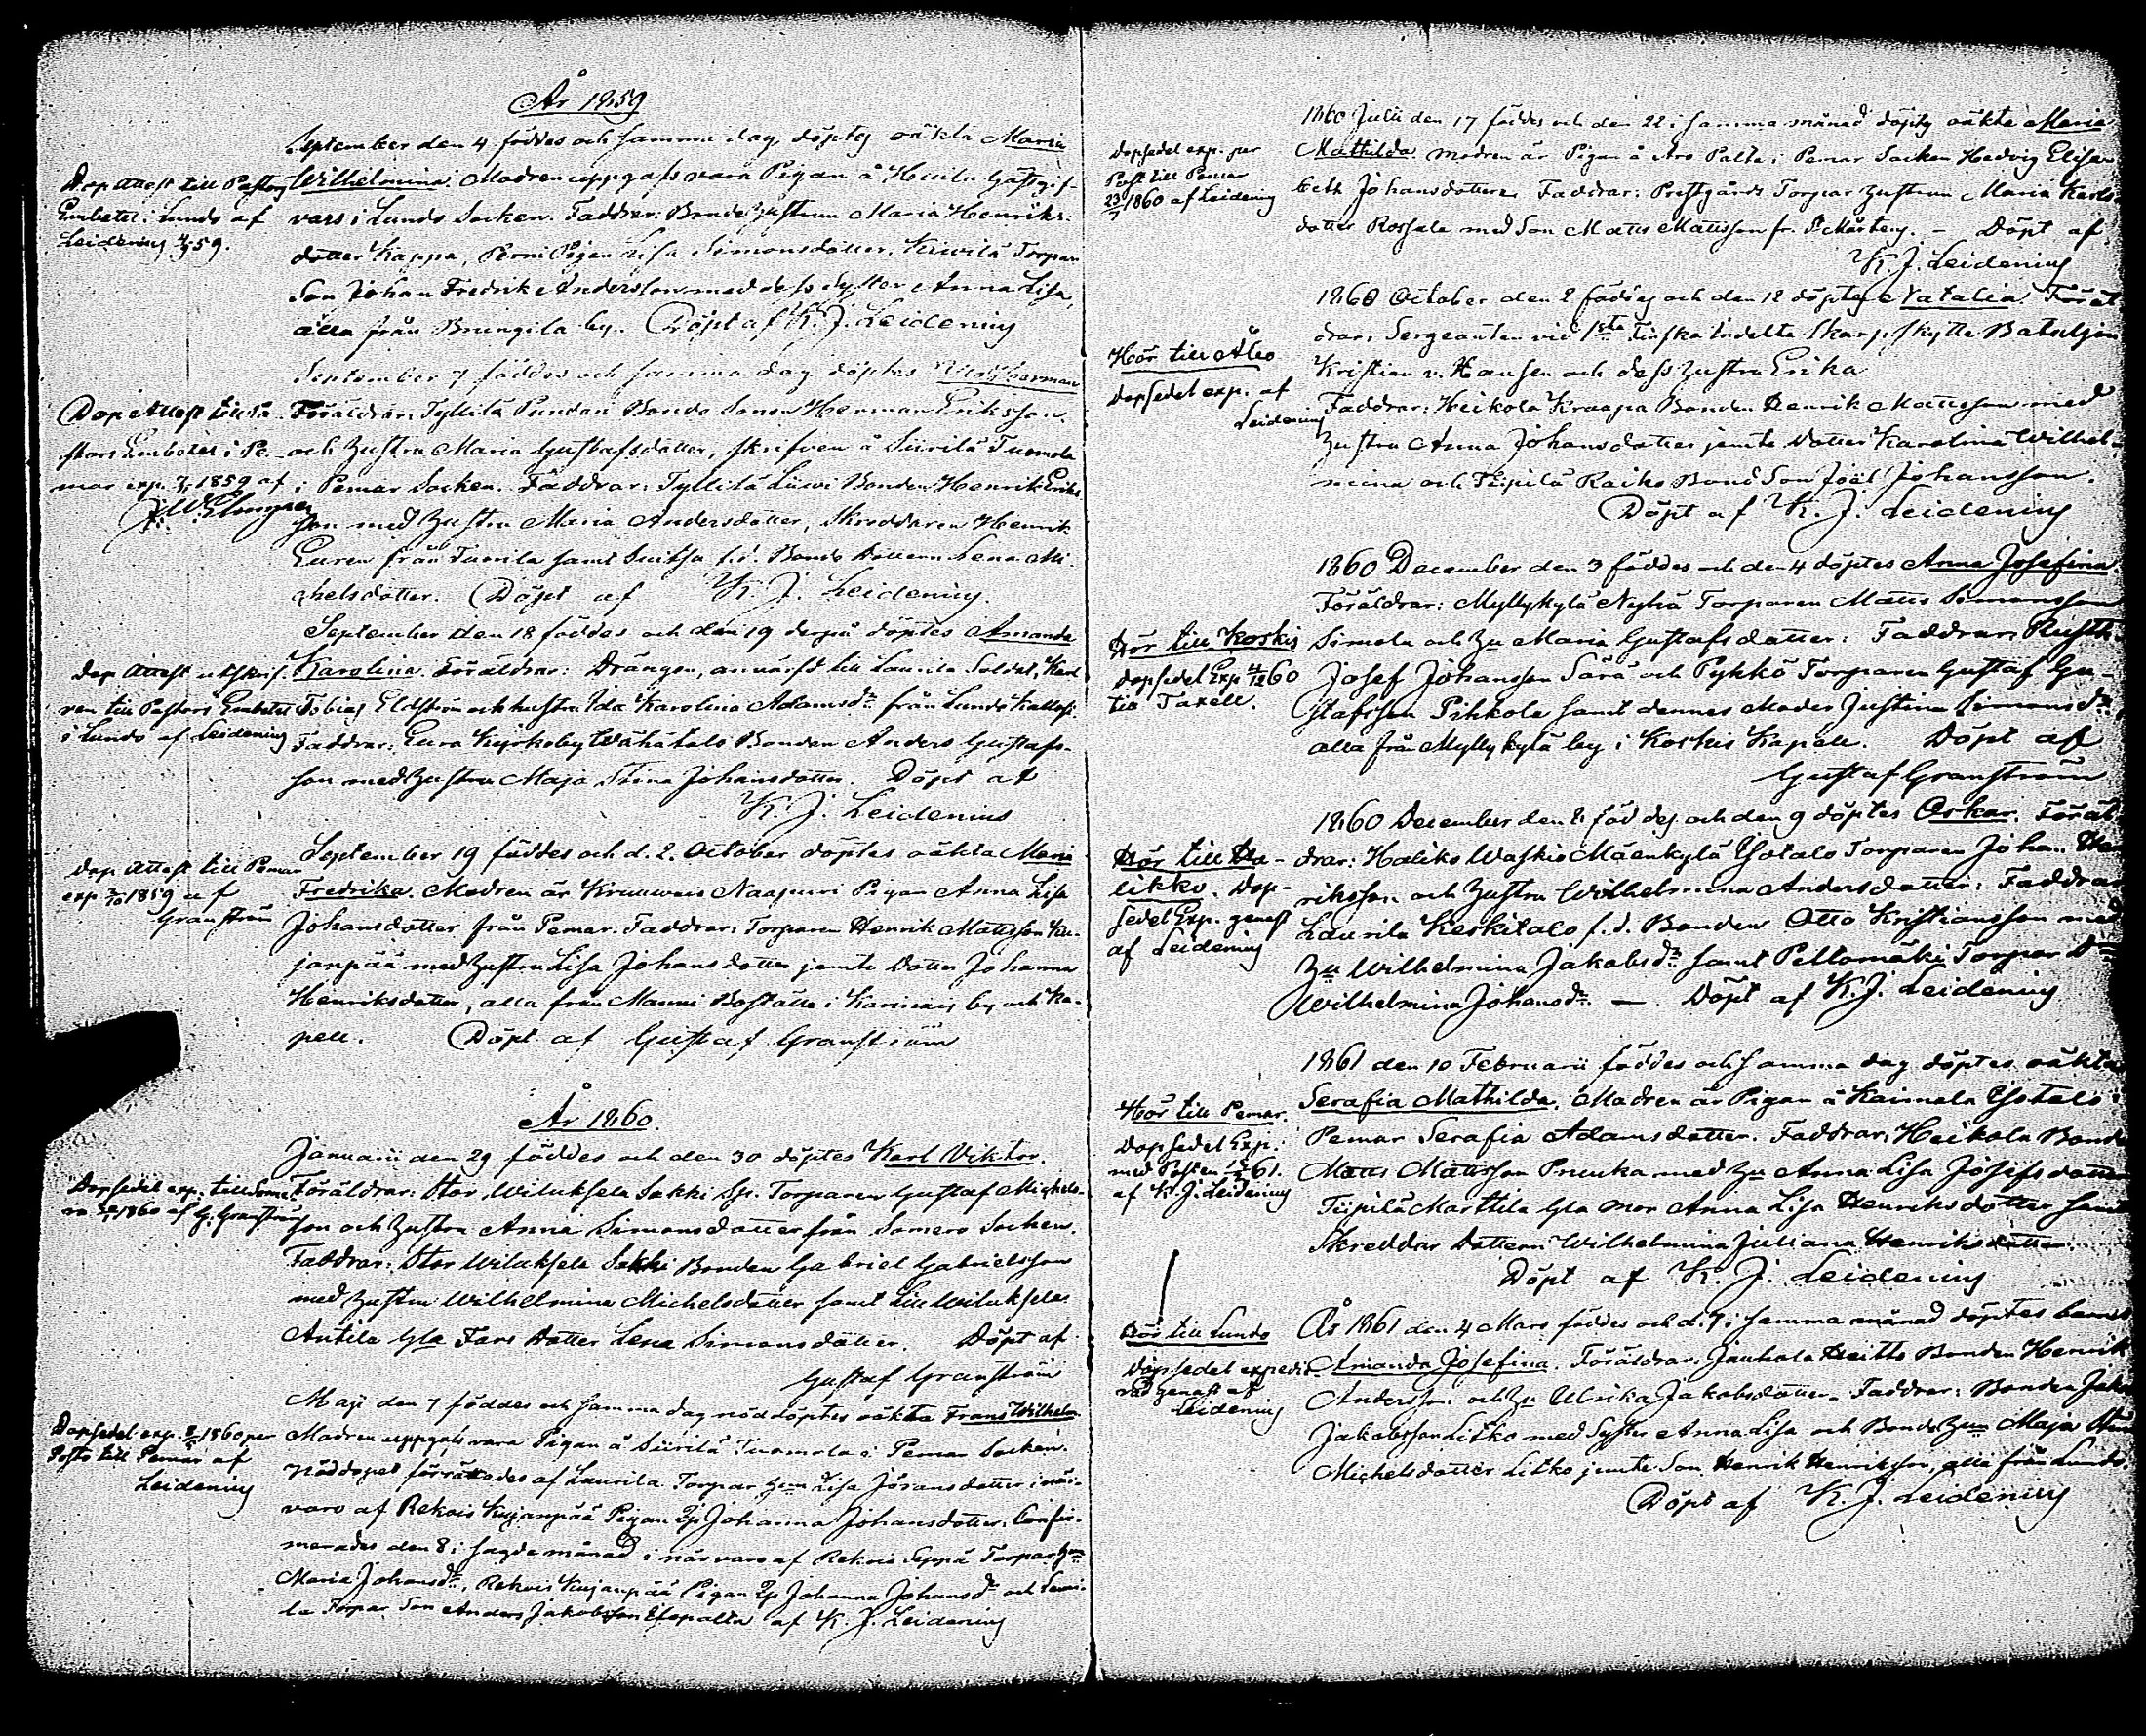 År 1859
September den 4 föddes och samma dag döptes oäkta Maria
Dop Attest till Pastors
Embetet i Lundo af
Leidenius 4/9 59.
Wilhelmina. Modren uppgafs vara Pigan å Gästgif-
vars i Lundo Socken. Faddrar: Bonde hustrun Maria Henriks-
dotter Kappa, Perni Pigan Lisa Simonsdotter, Kiwilä Torpare
Son Johan Fredrik Andersson med dess Syster Anna Lisa,
alla från Bringila by. Döpt af K. J. Leidenius
September 7 föddes och samma dag döptes
Dop Attest till Pa-
stors Embetet i Pe-
mar exp. 7/9 1859 af
Föräldrar: Tyllilä Bonde Sonen Herman Eriksson
och hustru Maria Gustafsdotter, skrifven å Siirilä Tuomola
i Pemar Socken. Faddrar: Tyllilä Liewi Bonden Henrik Eriks-
son med hustru Maria Andersdotter, Skreddaren Henrik
Euren från Tuorila samt f.d. Bonde Dottern Lena Mi-
chelsdotter. Döpt af K. J. Leidenius.
September den 18 föddes och den 19 derpå döptes Amanda
Dop Attest utskrif-
ven till Pastors Embetet
i Lundo af Leidenius
Karolina. Föräldrar: Drängen, till Laurila Soldat, Karl
Tobias Eldström och hustru Ida Karolina Adamsdr från Lundo
Faddrar: Eura Kyrkoby Wähätalo Bonden Anders Gustafs-
son med hustru Maja Stina Johansdotter. Döpt af
K. J. Leidenius
September 19 föddes och d. 2. October döptes oäkta Maria
Dop Attest till Pemar
exp 2/10 1859 af
Granström
Fredrika. Modren är Naapuri Pigan Anna Lisa
Johansdotter från Pemar. Faddrar: Torparen Henrik Mattsson Ku-
janpää med hustru Lisa Johansdotter jemte Dotter Johanna
Henriksdotter, alla från Manni Boställe i Karinais by och Ka-
pell. Döpt af Gustaf Granström
År 1860.
Januarii den 29 föddes och den 30 döptes Karl Viktor.
Dopsedel exp. till Some-
ro 1860 af G. Granström
Föräldrar: Stor Wiluksela Sakki Sp. Torparen Gustaf Michels-
son och hustru Anna Simonsdotter från Somero Socken.
Faddrar: Stor Wiluksela Sakki Bonden Gabriel Gabrielsson
med hustru Wilhelmina Michelsdotter samt Lill Wiluksela
Antila Gla Fars Dotter Lena Simonsdotter. Döpt af
Gustaf Granström
Maji den 7 föddes och samma dag nöddöptes oäkta Frans Wilhelm
Dopsedel exp. 1860 per
Post till Pemar af
Leidenius
Modren uppgafs vara Pigan å Siirilä Tuomola i Pemar Socken.
Nöddopet förrättades af Laurila Torpar hun Lisa Göransdotter i när-
varo af Rekois Kujanpää Pigan Johanna Johansdotter. Confir-
merades den 8 i sagde månad i närvaro af Rekois Seppä Torpar hun
Maria Johansdr, Rekois Kujanpää Pigan Johanna Johansdr och Lauri-
la Torpar Son Anders Jakobsson af K. J. Leidenius
1860 Julii den 17 föddes och den 22 i samma månad döptes oäkta Maria
Dopsedel exp. per
Post till Pemar
23/7 1860 af Leidenius
Mathilda. Modren är Pigan å Aro Palta i Pemar Socken Hedvig Elisa-
beth Johansdotter. Faddrar: Prestgårds Torpar hustrun Maria Karls-
dotter Rossala med Son Matts Mattsson fr. St Mårtens. - Döpt af
K. J. Leidenius
1860 October den 2 föddes och den 12 döptes Natalia. Föräl-
drar: Sergeanten vid 1sta Finska Indelta Skarpskytte Bataljon
Hör till Åbo
Dopsedel exp. af
Leidenius
Kristian v. Hausen och dess hustru Erika
Faddrar: Heikola Kraapa Bonden Henrik Mattsson med
hustru Anna Johansdotter jemte Dotter Karolina Wilhel-
mina och Tiipilä Raiko Bond Son Joel Johansson.
Döpt af K. J. Leidenius
1860 December den 3 föddes och den 4 döptes Anna Josefina.
Föräldrar: Myllykylä Nyhä Torparen Matts Simonsson
Hör till Koskis
Dopsedel Exp 4/12 60
till Taxell.
Simola och hu Maria Gustafsdotter: Faddrar:
Josef Johansson Särä och Pykkö Torparen Gustaf Gu-
stafsson Pihkola samt dennes Moder Justina Simonsdr,
alla från Myllykylä by i Koskis Kapell. Döpt af
Gustaf Granström
1860 December den 8 föddes och den 9 döptes Oskar. Föräl-
Hör till Ha-
likko. Dop-
sedel Exp. genast
af Leidenius
drar: Haliko Waskio Mäenkylä Ylotalo Torparen Johan Hen-
riksson och hustru Wilhelmina Andersdotter: Faddrar
Laurila Keskitalo f.d. Bonden Otto Kristiansson med
hu Wilhelmina Jakobsdr samt Peltomäki Torpar Dr
Wilhelmina Johansdr. — Döpt af K. J. Leidenius
1861 den 10 Februarii föddes och samma dag döptes oäkta
Hör till Pemar.
Dopsedel Exp.
med Posten 61.
af K. J. Leidenius
Serafia Mathilda. Modren är Pigan å Kainala Ylotalo i
Pemar Serafia Adamsdotter. Faddrar: Heikola Bonde
Matts Mattsson Prunka med hu Anna Lisa Josefsdotter
Tiipilä Marttila Gla mor Anna Lisa Henriksdotter samt
Skreddar Dottern Wilhelmina Juliana Henriksdotter.
Döpt af K. J. Leidenius
År 1861 den 4 Mars föddes och d. 7 i samma månad döptes barnet
Hör till Lundo
Dopsedel expedie-
rad genast af
Leidenius
Amanda Josefina. Föräldrar: Jauhola Heitto Bonden Henrik
Andersson och hu Ulrika Jakobsdotter. Faddrar: Bonden
Jakobsson Litko med Syster Anna Lisa och Bonde hun Maja
Michelsdotter Litko jemte Son Henrik Henriksson, alla från Lundo.
Döpt af K. J. Leidenius